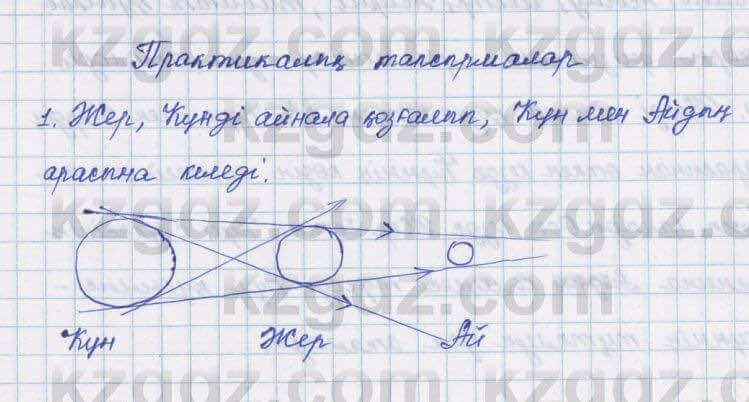 Практикалық тапсырмалар
1. Жер, Күнді айнала қозғалып, Күн мен Айдың
арасына келеді.
Күн Жер Ай
kzgdz.com